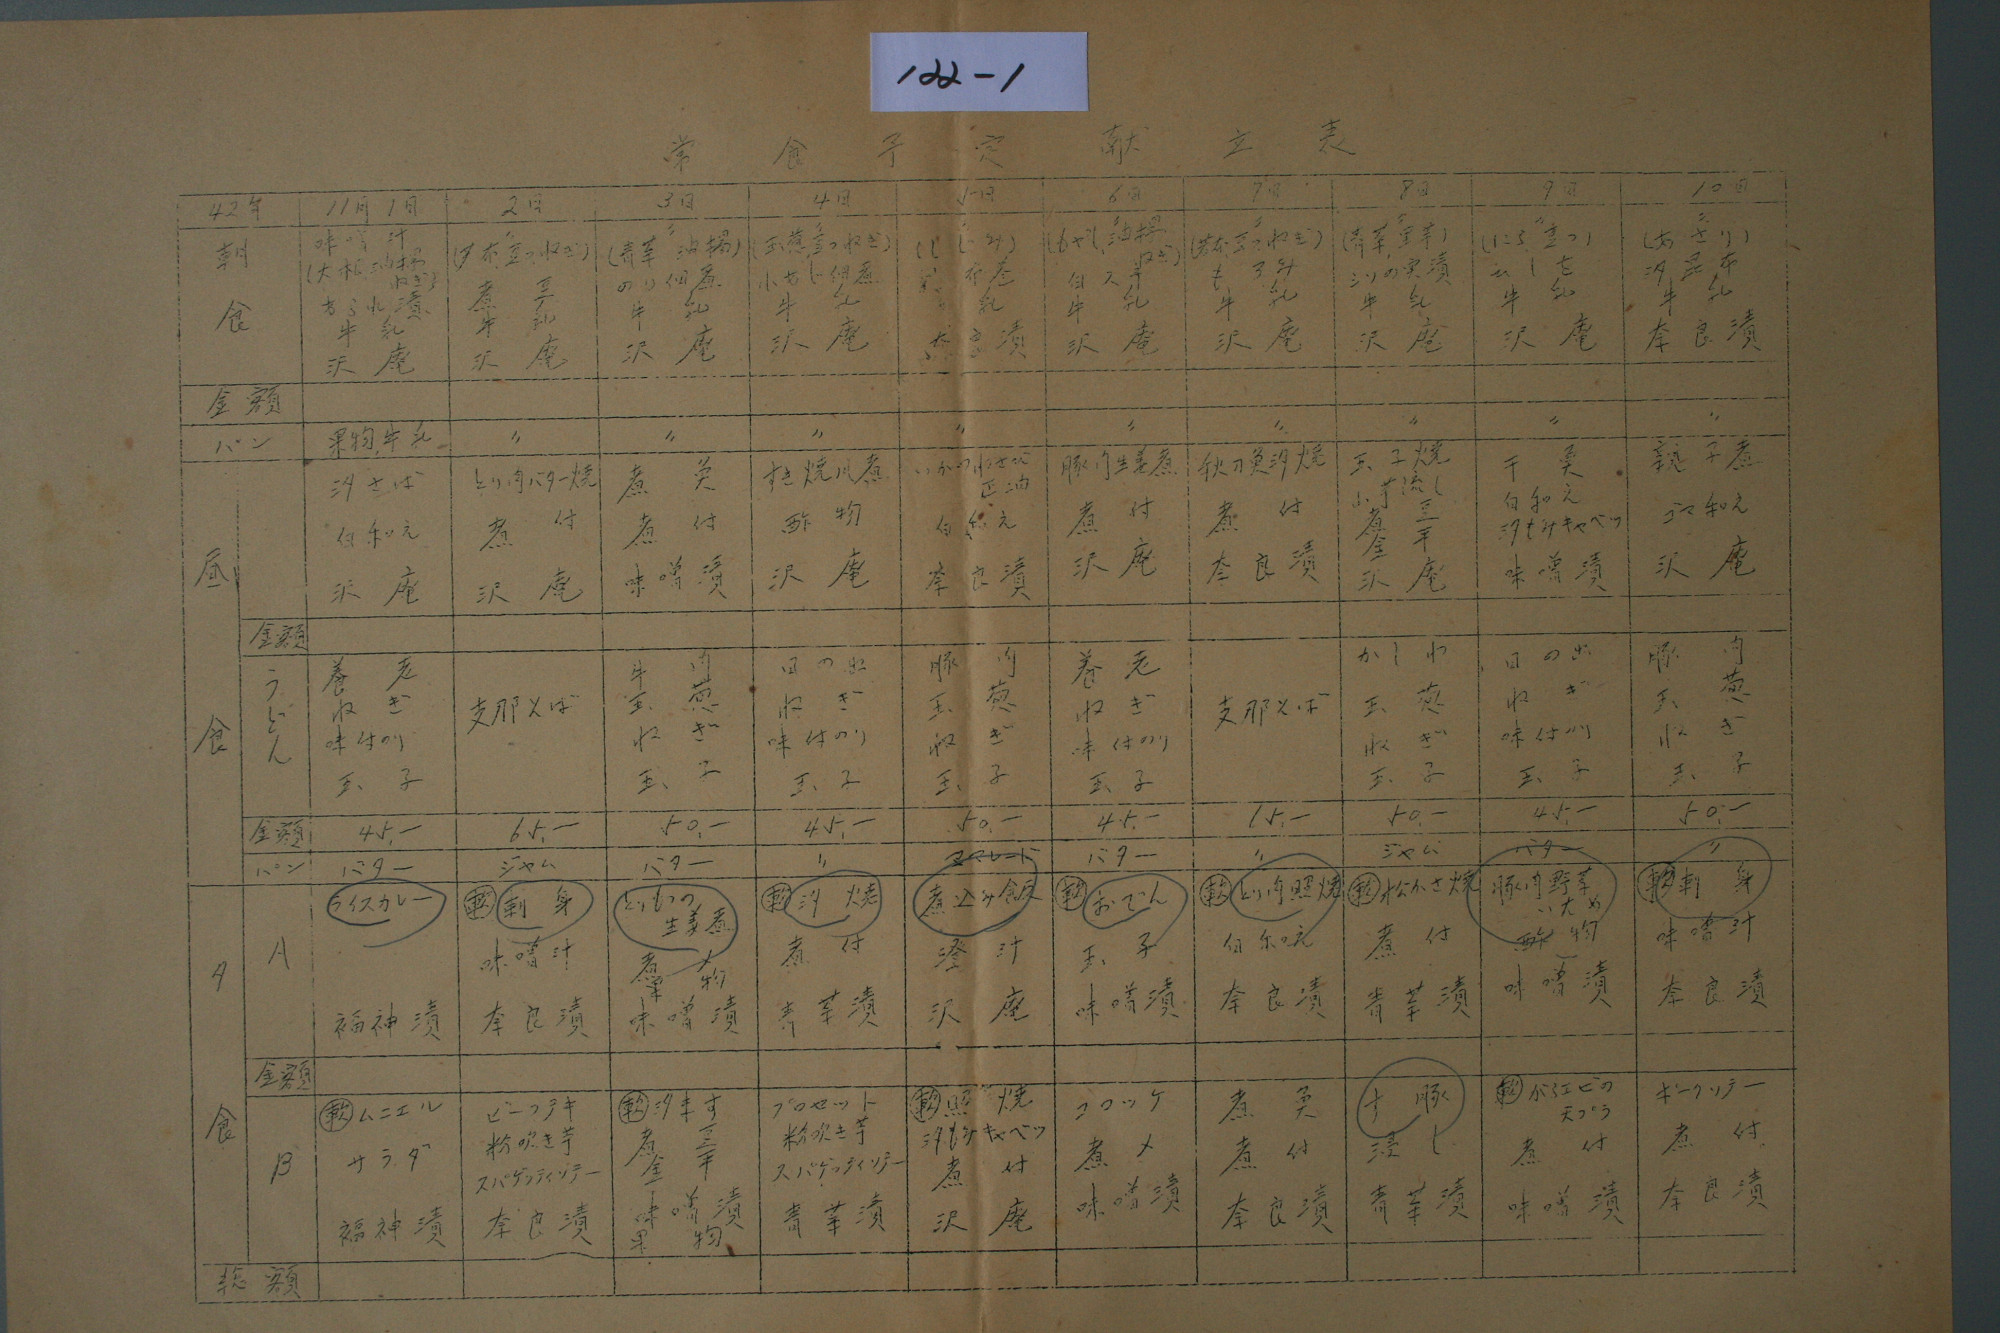 122-1
常食予定献立表
42年 11月1日 2日 3日 4日 5日 6日 7日 8日 9日 10日
朝食
味噌汁
(大根、油揚 ねぎ)
牛乳
沢庵
煮豆
牛乳
沢庵
(青菜、油揚)
のり佃煮
牛乳
沢庵
(玉葱、豆つねぎ)
牛乳
沢庵
(しじみ)
(もやし、油揚 ねぎ)
牛乳
沢庵
牛乳
沢庵
(青菜、里芋)
牛乳
沢庵
(にら、豆つ)
牛乳
沢庵
(あさり)
汐昆布
牛乳
奈良漬
金額
パン 果物、牛乳 〃 〃 〃 〃 〃 〃 〃 〃 〃
昼食
汐さば
白和え
沢庵
とり肉バター焼
煮付
沢庵
煮魚
煮付
味噌漬
すき焼風煮
酢物
沢庵
白和え
奈良漬
豚肉生姜煮
煮付
沢庵
秋刀魚汐焼
煮付
奈良漬
玉子焼
沢庵
干魚
白和え
汐もみキャベツ
味噌漬
親子煮
ゴマ和え
沢庵
金額
うどん
養老
ねぎ
味付のり
玉子
支那そば
牛肉
玉葱
ねぎ
玉子
日の出
ねぎ
味付のり
玉子
豚肉
玉葱
ねぎ
玉子
養老
ねぎ
味付のり
玉子
支那そば
かしわ
玉葱
ねぎ
玉子
日の出
ねぎ
味付のり
玉子
豚肉
玉葱
ねぎ
玉子
金額 45.— 65.— 50.— 45.— 50.— 45.— 65.— 50.— 45.— 50.—
パン バター ジャム バター 〃 ママレード バター 〃 ジャム バター 〃
夕食
A
ライスカレー
福神漬
軟 刺身
味噌汁
奈良漬
とりもつの
生姜煮
煮〆
果物
味噌漬
軟 汐焼
煮付
青菜漬
煮込み飯
澄汁
沢庵
軟 おでん
玉子
味噌漬
軟 とり肉照焼
白和え
奈良漬
軟 松かさ焼
煮付
青菜漬
豚肉野菜
いため
酢物
味噌漬
軟 刺身
味噌汁
奈良漬
金額
B
軟 ムニエル
サラダ
福神漬
ビーフテキ
粉吹き芋
スパゲッティソテー
奈良漬
軟 汐ます
味噌漬
果物
ブロセット
粉吹き芋
スパゲッティソテー
青菜漬
軟 照焼
汐もみキャベツ
煮付
沢庵
コロッケ
煮〆
味噌漬
煮魚
煮付
奈良漬
す豚
浸し
青菜漬
軟 がらエビの
天プラ
煮付
味噌漬
ポークソテー
煮付
奈良漬
総額